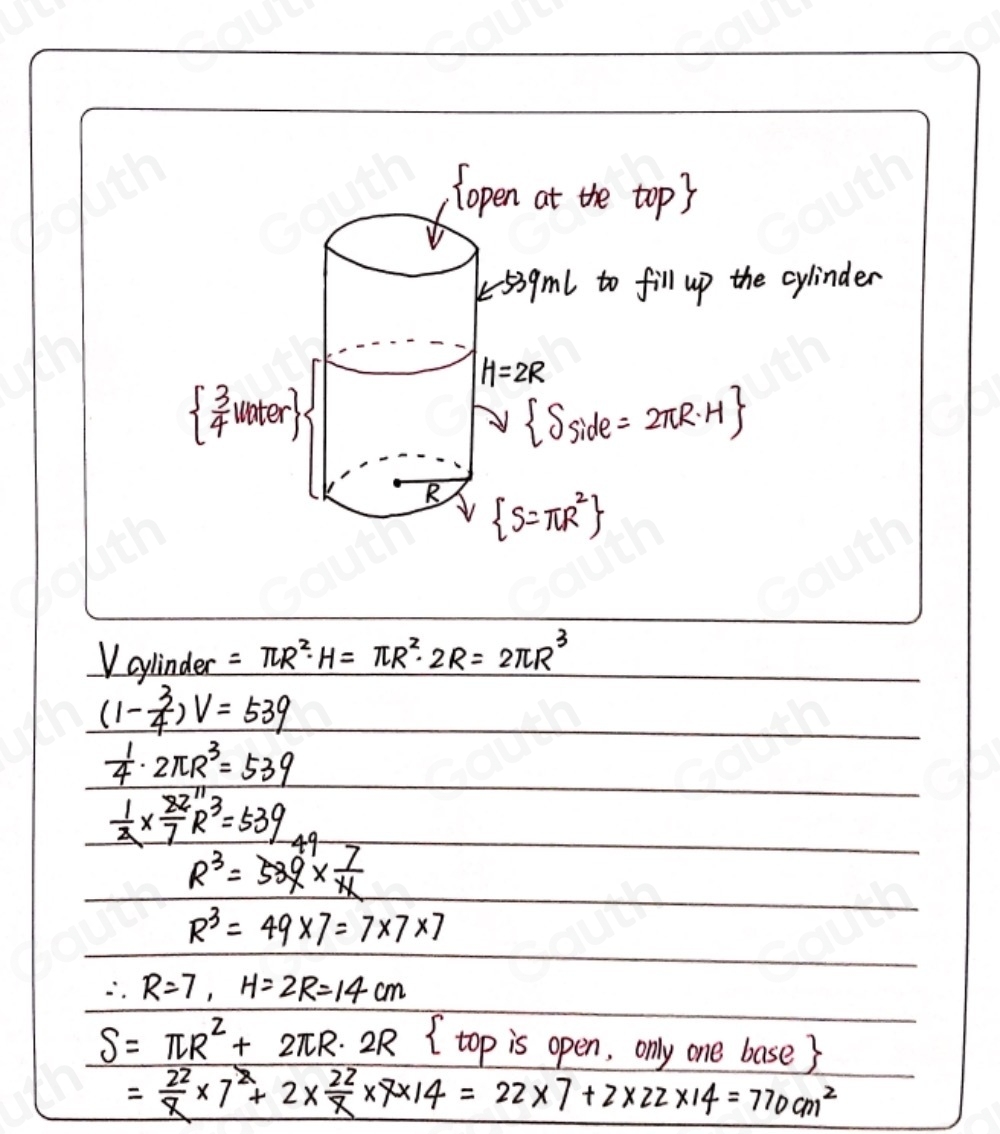 {open at the top}
539ml to fill up the cylinder
H=2R
{3/4 water}
{S side = 2πR·H}
R
{S=πR²}
V cylinder = πR²·H = πR²·2R = 2πR³
(1-3/4)V = 539
1/4 · 2πR³ = 539
1/2 × 22/7 11 R³ = 539
R³ = 539 49 × 7/11
R³ = 49×7 = 7×7×7
∴ R=7, H=2R=14 cm
S = πR² + 2πR·2R { top is open, only one base }
= 22/7 × 7² + 2× 22/7 ×7×14 = 22×7+2×22×14 = 770cm²
Gauth